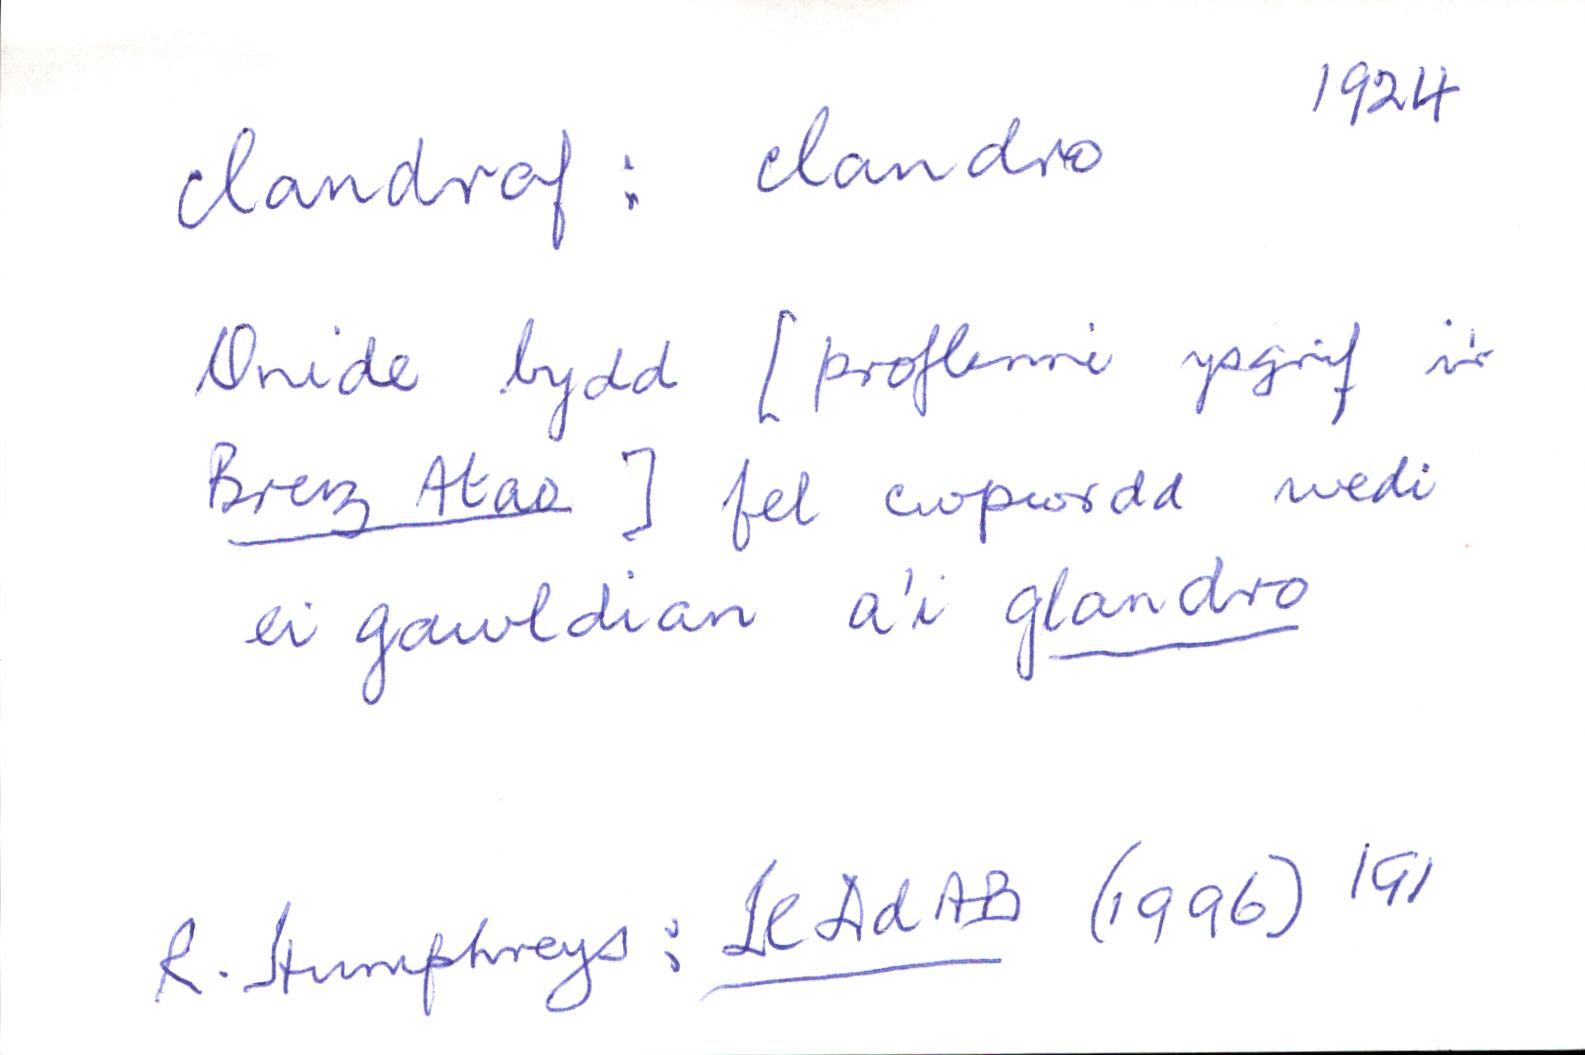 1924
clandraf : clandro
Onide bydd [proflenni ysgrif i'r
Breiz Atao] fel cwpwrdd wedi
ei gawldian a'i glandro
R. Humphreys : (1996) 191